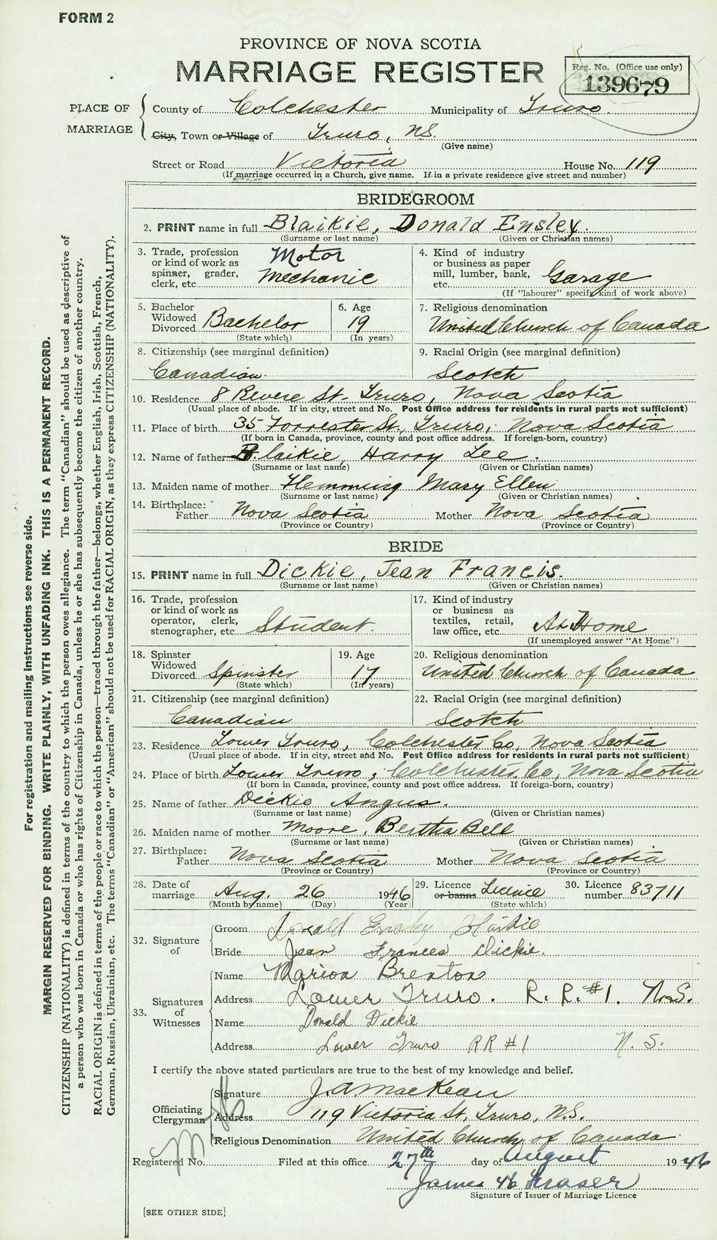 FORM 2
PROVINCE OF NOVA SCOTIA
MARRIAGE REGISTER
Reg. No. (Office use only)
139679
PLACE OF MARRIAGE
County of Colchester Municipality of Truro
City, Town or Village of Truro, N.S.
(Give name)
Street or Road Victoria House No. 119
(If marriage occurred in a Church, give name. If in a private residence give street and number)
BRIDEGROOM
2. PRINT name in full Blaikie, Donald Ensley.
(Surname or last name) (Given or Christian names)
3. Trade, profession or kind of work as spinner, grader, clerk, etc. Motor Mechanic
4. Kind of industry or business as paper mill, lumber, bank, etc. Garage
(If "labourer" specify kind of work above)
5. Bachelor Widowed Divorced Bachelor
(State which)
6. Age 19
(In years)
7. Religious denomination
United Church of Canada
8. Citizenship (see marginal definition)
Canadian.
9. Racial Origin (see marginal definition)
Scotch
10. Residence 8 Revere St. Truro, Nova Scotia
(Usual place of abode. If in city, street and No. Post Office address for residents in rural parts not sufficient)
11. Place of birth 35 Forrester St., Truro, Nova Scotia
(If born in Canada, province, county and post office address. If foreign-born, country)
12. Name of father Blaikie, Harry Lee.
(Surname or last name) (Given or Christian names)
13. Maiden name of mother Hemming Mary Ellen
(Surname or last name) (Given or Christian names)
14. Birthplace: Father Nova Scotia Mother Nova Scotia
(Province or Country) (Province or Country)
BRIDE
15. PRINT name in full Dickie, Jean Francis.
(Surname or last name) (Given or Christian names)
16. Trade, profession or kind of work as operator, clerk, stenographer, etc. Student.
17. Kind of industry or business as textiles, retail, law office, etc. At Home
(If unemployed answer "At Home")
18. Spinster Widowed Divorced Spinster
(State which)
19. Age 17
(In years)
20. Religious denomination
United Church of Canada
21. Citizenship (see marginal definition)
Canadian
22. Racial Origin (see marginal definition)
Scotch
23. Residence Lower Truro, Colchester Co, Nova Scotia
(Usual place of abode. If in city, street and No. Post Office address for residents in rural parts not sufficient)
24. Place of birth Lower Truro, Colchester Co, Nova Scotia
(If born in Canada, province, county and post office address. If foreign-born, country)
25. Name of father Dickie Angus.
(Surname or last name) (Given or Christian names)
26. Maiden name of mother Moore, Bertha Bell
(Surname or last name) (Given or Christian names)
27. Birthplace: Father Nova Scotia Mother Nova Scotia
(Province or Country) (Province or Country)
28. Date of marriage Aug. 26 1946
(Month by name) (Day) (Year)
29. Licence or banns Licence
(State which)
30. Licence number 83711
32. Signature of
Groom Donald Ensley Blaikie
Bride Jean Frances Dickie.
33. Signatures of Witnesses
Name Marion Brenton
Address Lower Truro. R. R. #1. N.S.
Name Donald Dickie
Address Lower Truro RR #1 N. S.
I certify the above stated particulars are true to the best of my knowledge and belief.
Officiating Clergyman
Signature J.A. MacKean
Address 119 Victoria St. Truro, N.S.
Religious Denomination United Church of Canada.
Registered No. Filed at this office 27th day of August 1946
James Fraser
Signature of Issuer of Marriage Licence
[SEE OTHER SIDE]
For registration and mailing instructions see reverse side.
MARGIN RESERVED FOR BINDING. WRITE PLAINLY, WITH UNFADING INK. THIS IS A PERMANENT RECORD.
CITIZENSHIP (NATIONALITY) is defined in terms of the country to which the person owes allegiance. The term "Canadian" should be used as descriptive of
a person who was born in Canada or who has rights of Citizenship in Canada, unless he or she has subsequently become the citizen of another country.
RACIAL ORIGIN is defined in terms of the people or race to which the person—traced through the father—belongs, whether English, Irish, Scottish, French,
German, Russian, Ukrainian, etc. The terms "Canadian" or "American" should not be used for RACIAL ORIGIN, as they express CITIZENSHIP (NATIONALITY).